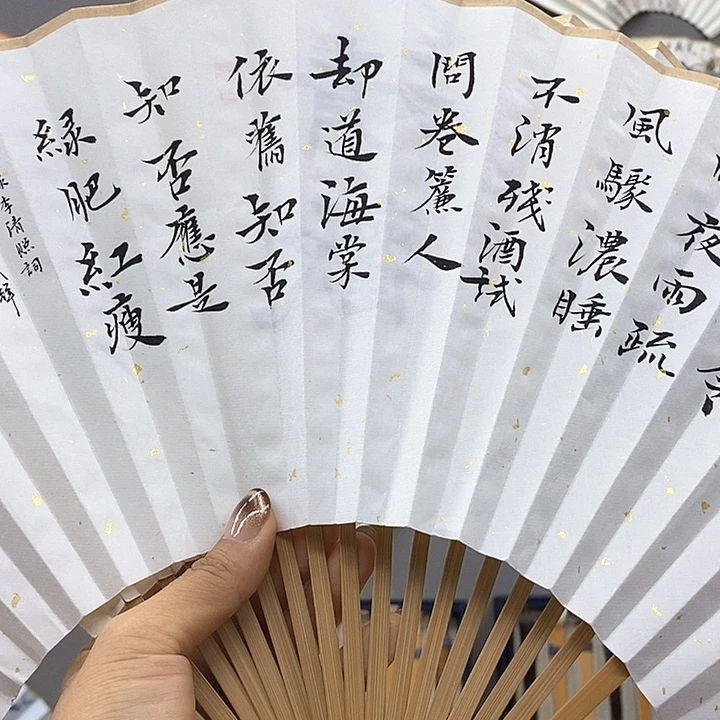 夜雨疏
風驟濃睡
不消殘酒試
問卷簾人
却道海棠
依舊知否
知否應是
緑肥紅瘦
李清照詞